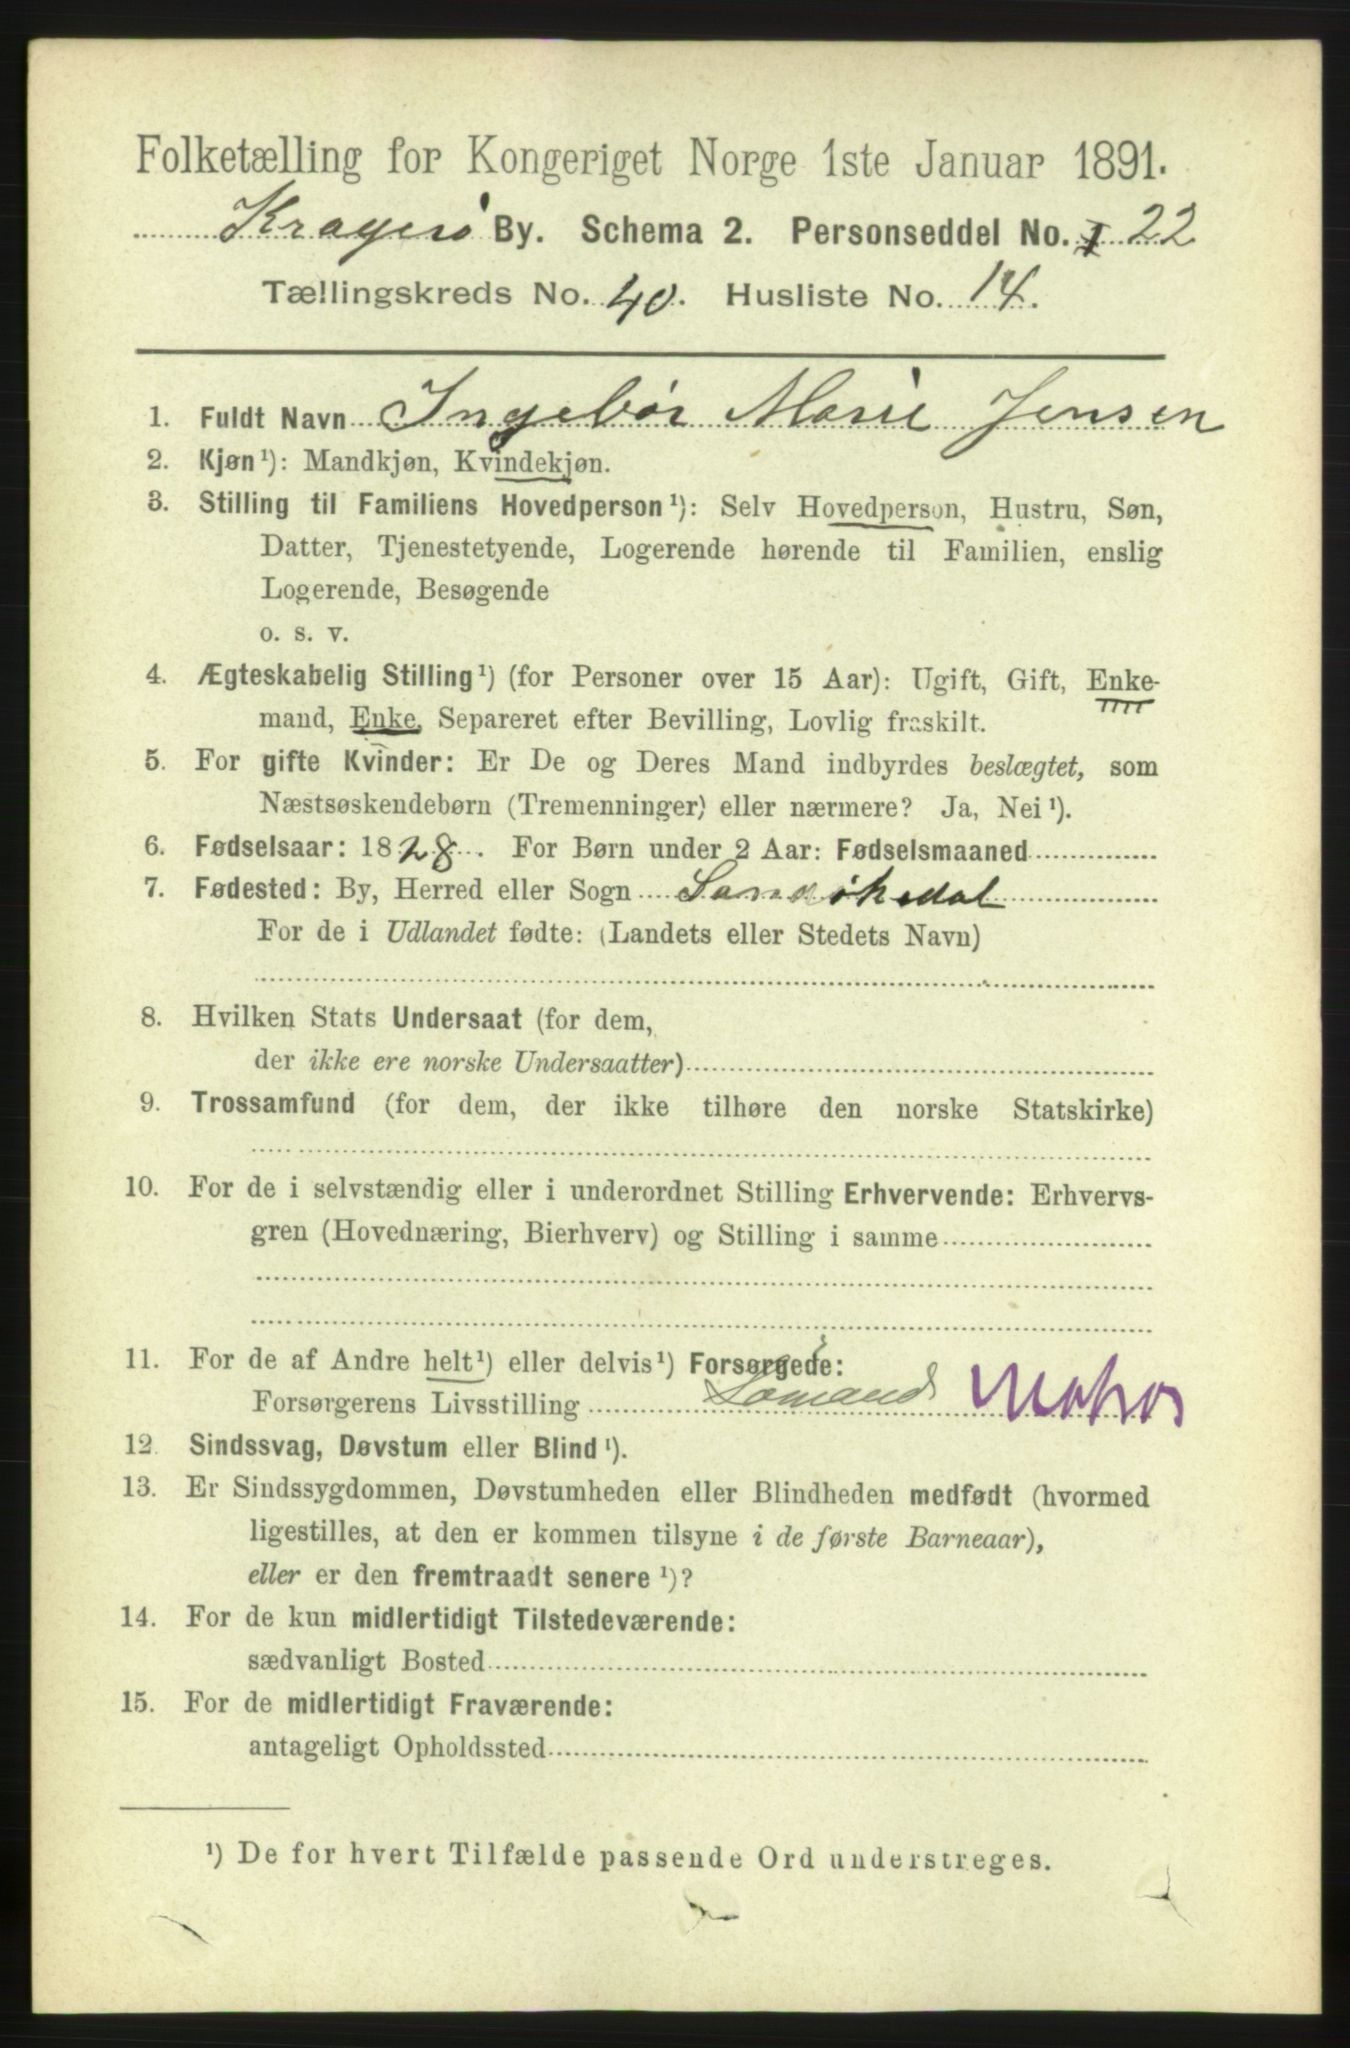 Folketælling for Kongeriget Norge 1ste Januar 1891.
Kragerø By. Schema 2. Personseddel No. 1 22
Tællingskreds No. 40. Husliste No. 14.
1. Fuldt Navn Ingebør Marie Jensen
2. Kjøn¹): Mandkjøn, Kvindekjøn.
3. Stilling til Familiens Hovedperson¹): Selv Hovedperson, Hustru, Søn,
Datter, Tjenestetyende, Logerende hørende til Familien, enslig
Logerende, Besøgende
o. s. v.
4. Ægteskabelig Stilling¹) (for Personer over 15 Aar): Ugift, Gift, Enke-
mand, Enke, Separeret efter Bevilling, Lovlig fraskilt.
5. For gifte Kvinder: Er De og Deres Mand indbyrdes beslægtet, som
Næstsøskendebørn (Tremenninger) eller nærmere? Ja, Nei¹).
6. Fødselsaar: 1828. For Børn under 2 Aar: Fødselsmaaned
7. Fødested: By, Herred eller Sogn Sandøkedal
For de i Udlandet fødte: (Landets eller Stedets Navn)
8. Hvilken Stats Undersaat (for dem,
der ikke ere norske Undersaatter)
9. Trossamfund (for dem, der ikke tilhøre den norske Statskirke)
10. For de i selvstændig eller i underordnet Stilling Erhvervende: Erhvervs-
gren (Hovednæring, Bierhverv) og Stilling i samme
11. For de af Andre helt¹) eller delvis¹) Forsørgede:
Forsørgerens Livsstilling Sømand Matros
12. Sindssvag, Døvstum eller Blind¹).
13. Er Sindssygdommen, Døvstumheden eller Blindheden medfødt (hvormed
ligestilles, at den er kommen tilsyne i de første Barneaar),
eller er den fremtraadt senere¹)?
14. For de kun midlertidigt Tilstedeværende:
sædvanligt Bosted
15. For de midlertidigt Fraværende:
antageligt Opholdssted
¹) De for hvert Tilfælde passende Ord understreges.